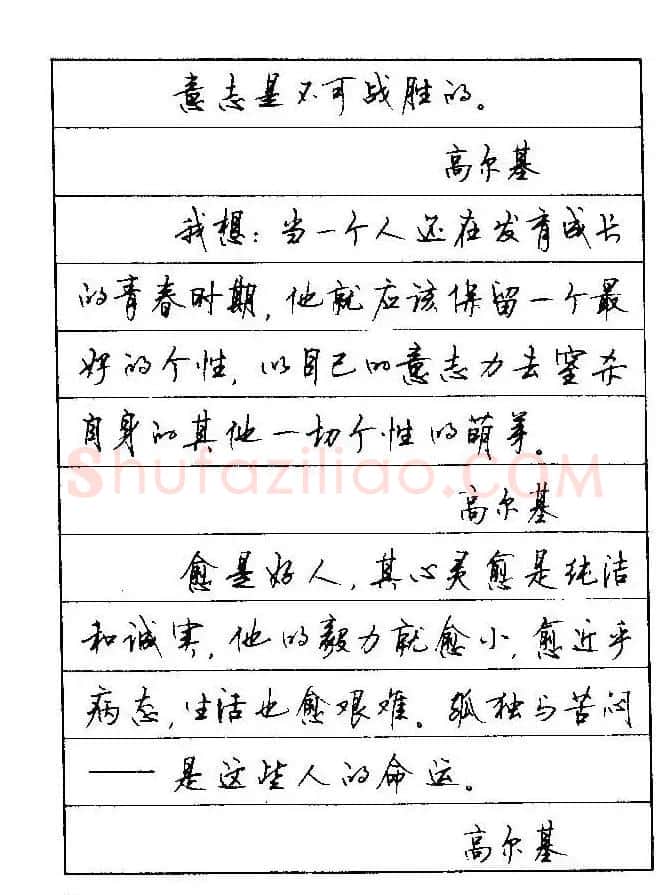 意志是不可战胜的。
高尔基
我想:当一个人还在发育成长
的青春时期,他就应该保留一个最
好的个性,以自己的意志力去窒杀
自身的其他一切个性的萌芽。
Shufaziliao.COM
高尔基
愈是好人,其心灵愈是纯洁
和诚实,他的毅力就愈小,愈近乎
病态,生活也愈艰难。孤独与苦闷
——是这些人的命运。
高尔基